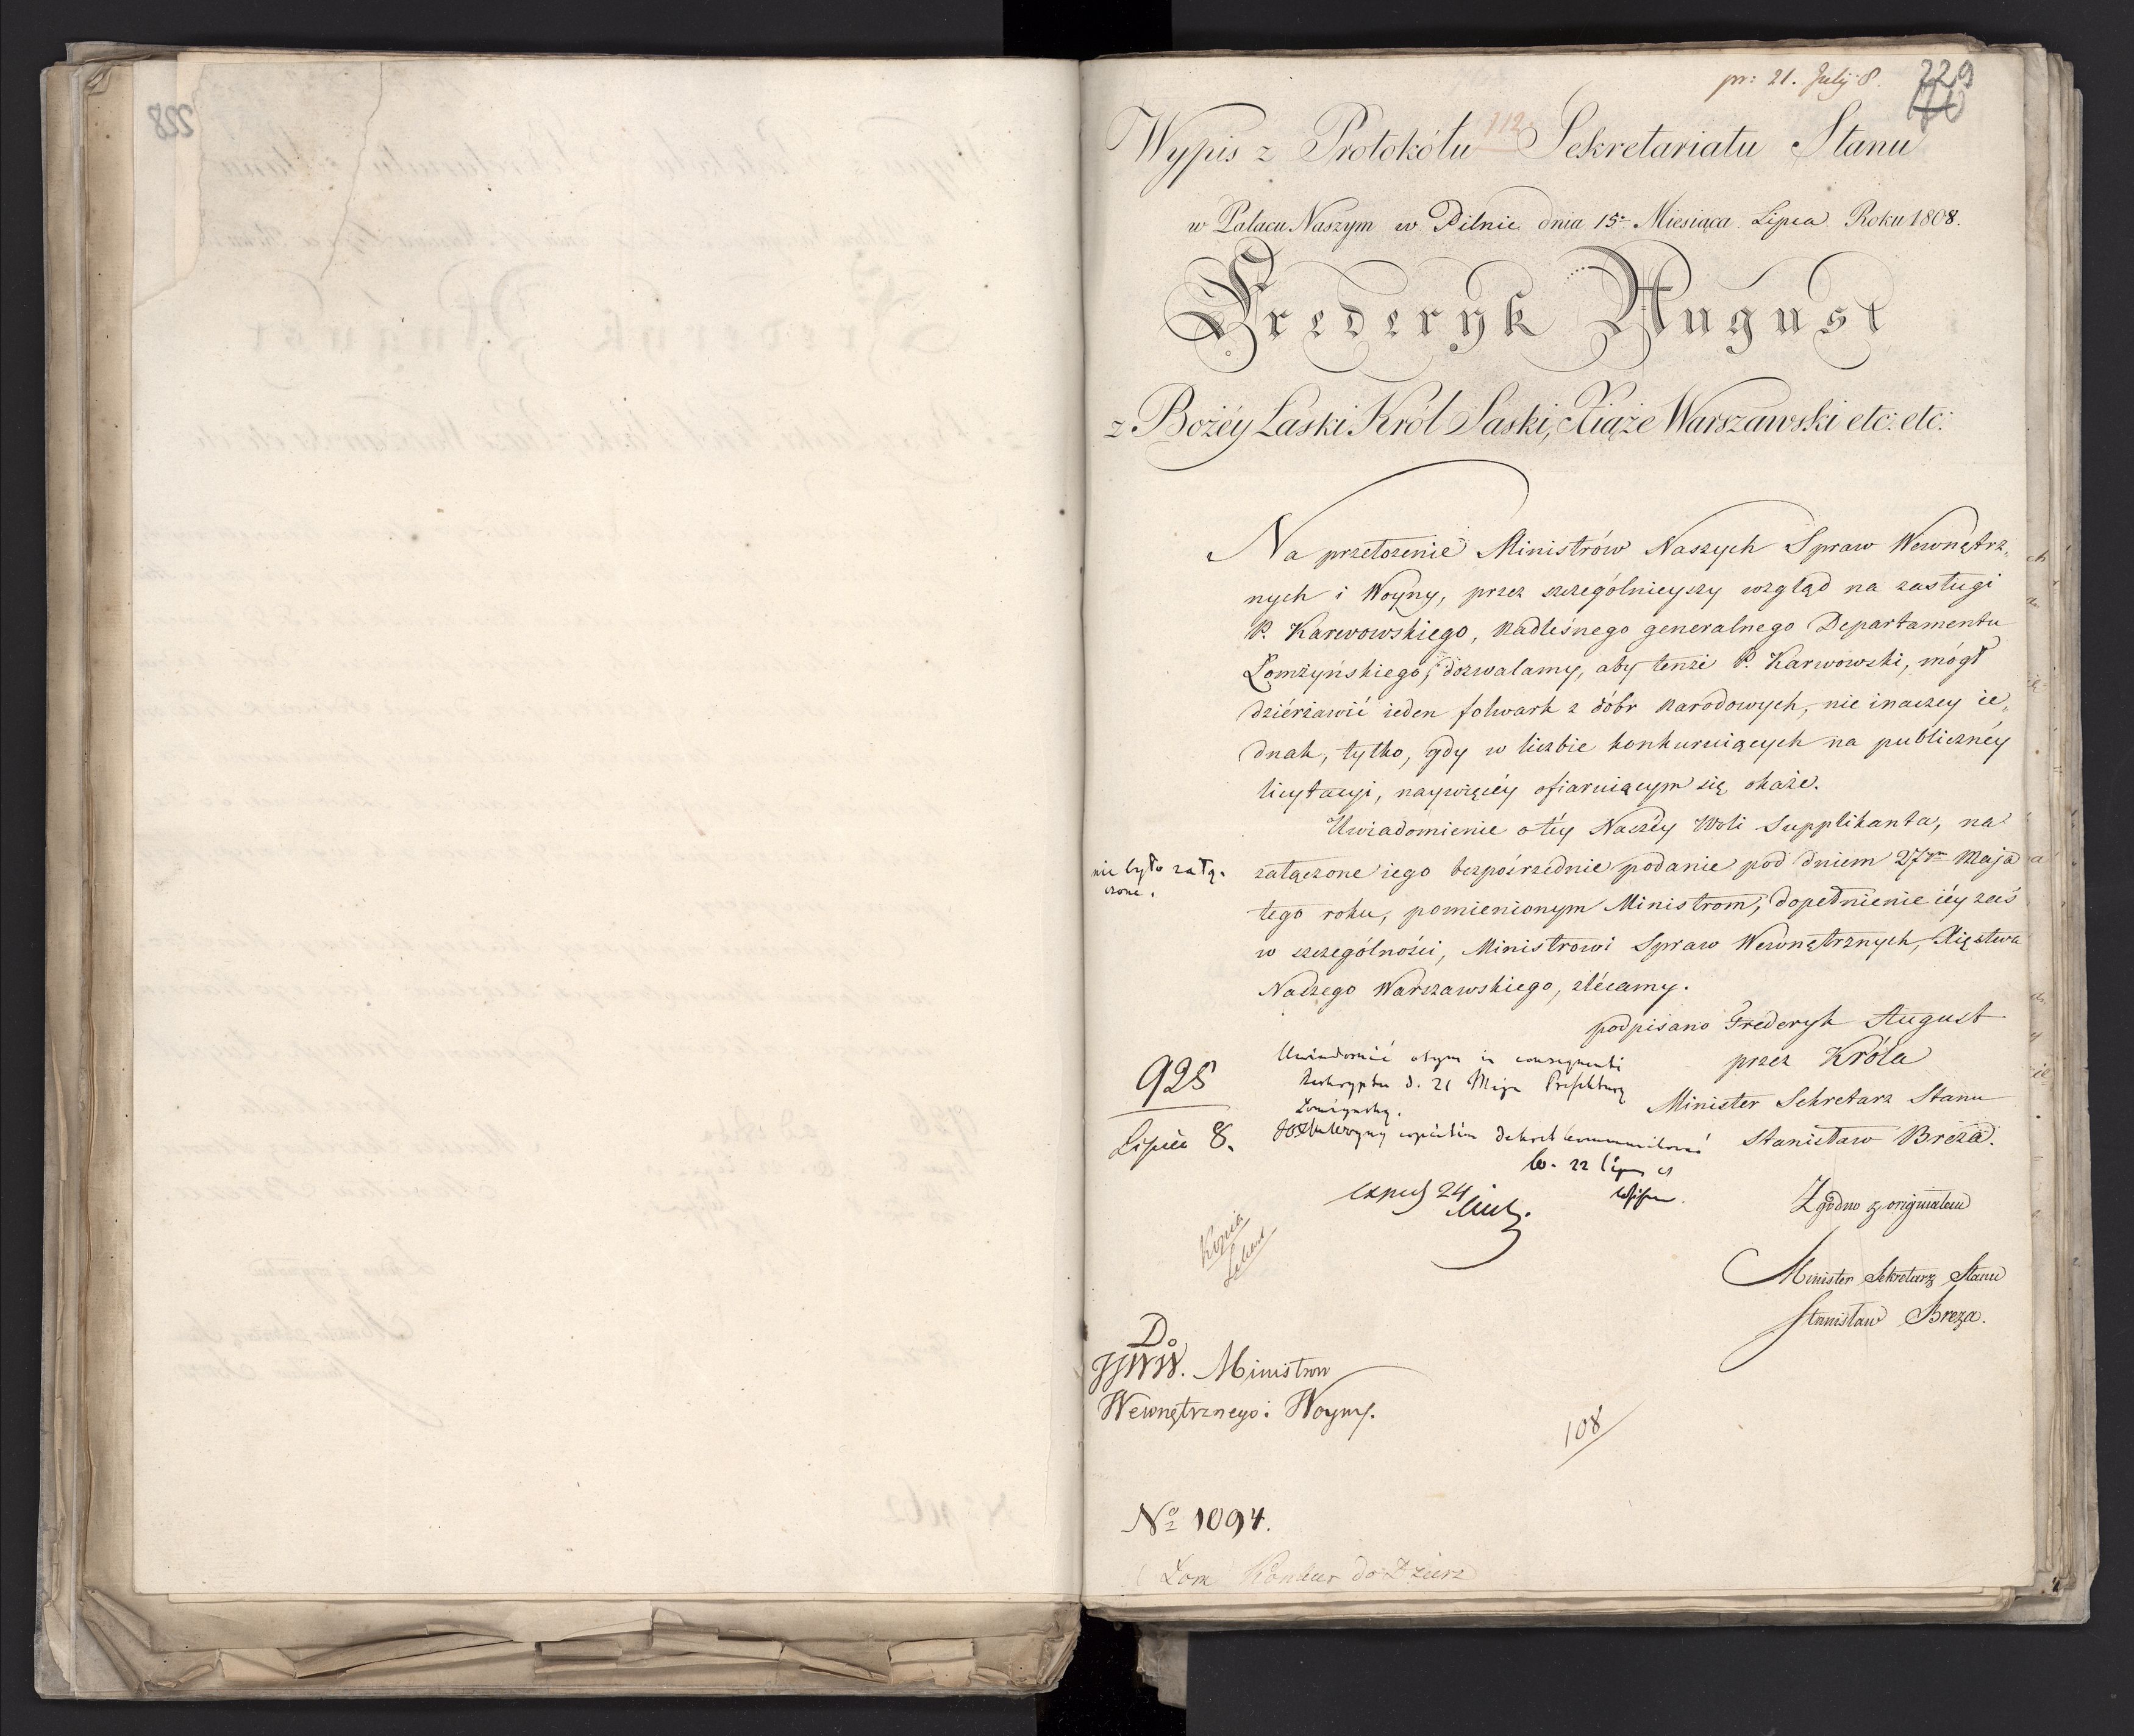 228
pr: 21. July 8.
229
112
Wypis z Protokółu Sekretariatu Stanu
w Pałacu Naszym w Pilnic dnia 15. Miesiąca Lipca Roku 1808.
Frederyk August
z Bożéy Łaski Król Saski, Xiąże Warszawski etc: etc:
Na przełożenie Ministrów Naszych Spraw Wewnętrz„
nych i Woyny, przez szczególnieyszy wzgląd na zasługi
P. Karwowskiego, Nadleśnego generalnego Departamentu
Łomżyńskiego, dozwalamy, aby tenże P. Karwowski, mógł
dziérżawić ieden folwark z dóbr Narodowych, nie inaczey ie„
dnak, tylko, gdy w liczbie konkuruiących na publicznéy
licytacyi, naywięcéy ofiaruiącym się okaże.
Uwiadomienie o téy Naszéy Woli Supplikanta, na
nie było załą-
czone.
załączone iego bezpośrzednie podanie pod dniem 27ym Maja
tego roku, pomienionym Ministrom, dopełnienie iéy zaś
w szczególności, Ministrowi Spraw Wewnętrznych, Xięstwa
Naszego Warszawskiego, zlécamy.
podpisano Frederyk August
przez Króla
Minister Sekretarz Stanu
Stanisław Breza.
925
Lipca 8.
Uwiadomić o tym in consequenti
Reskryptu d. 21 Maja Prefekturę
Łomżyńską.
22 Lipca
24
Kopia
Zgodno z originałem
Minister Sekretarz Stanu
Stanisław Breza.
Do
JJWW. Ministrow
Wewnętrznego i Woyny.
108
No 1094.
Łom Konkur do Dzierż